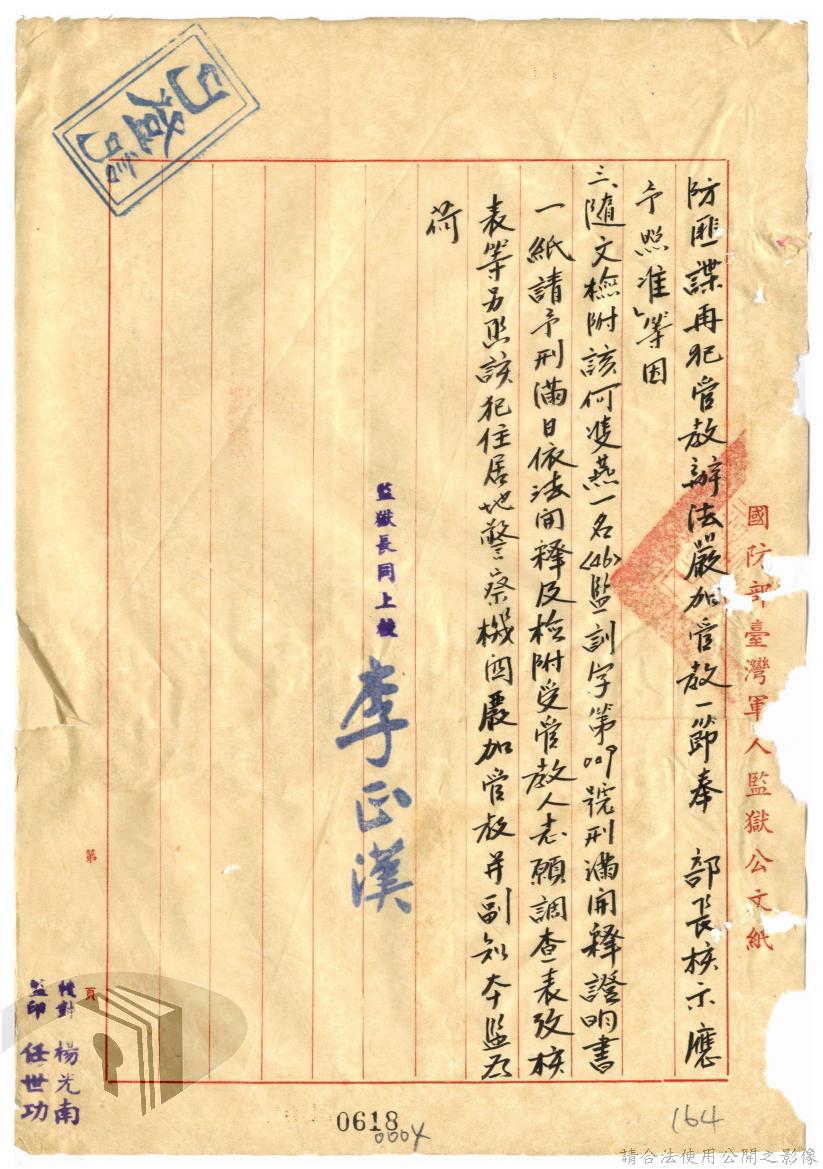 國防部臺灣軍人監獄公文紙
防匪諜再犯管教辦法嚴加管教一節奉 部長核示應
予照准」等因
三、隨文檢附該何隻燕一名(46)監訓字第009號刑滿開釋證明書
一紙請予刑滿日依法開釋及檢附受管教人志願調查表考核
表等另照該犯住居地警察機関嚴加管教并副知本監為
荷
監獄長同上校
李正漢
第
頁
校對 楊光南
監印 任世功
0618
0004
164
請合法使用公開之影像